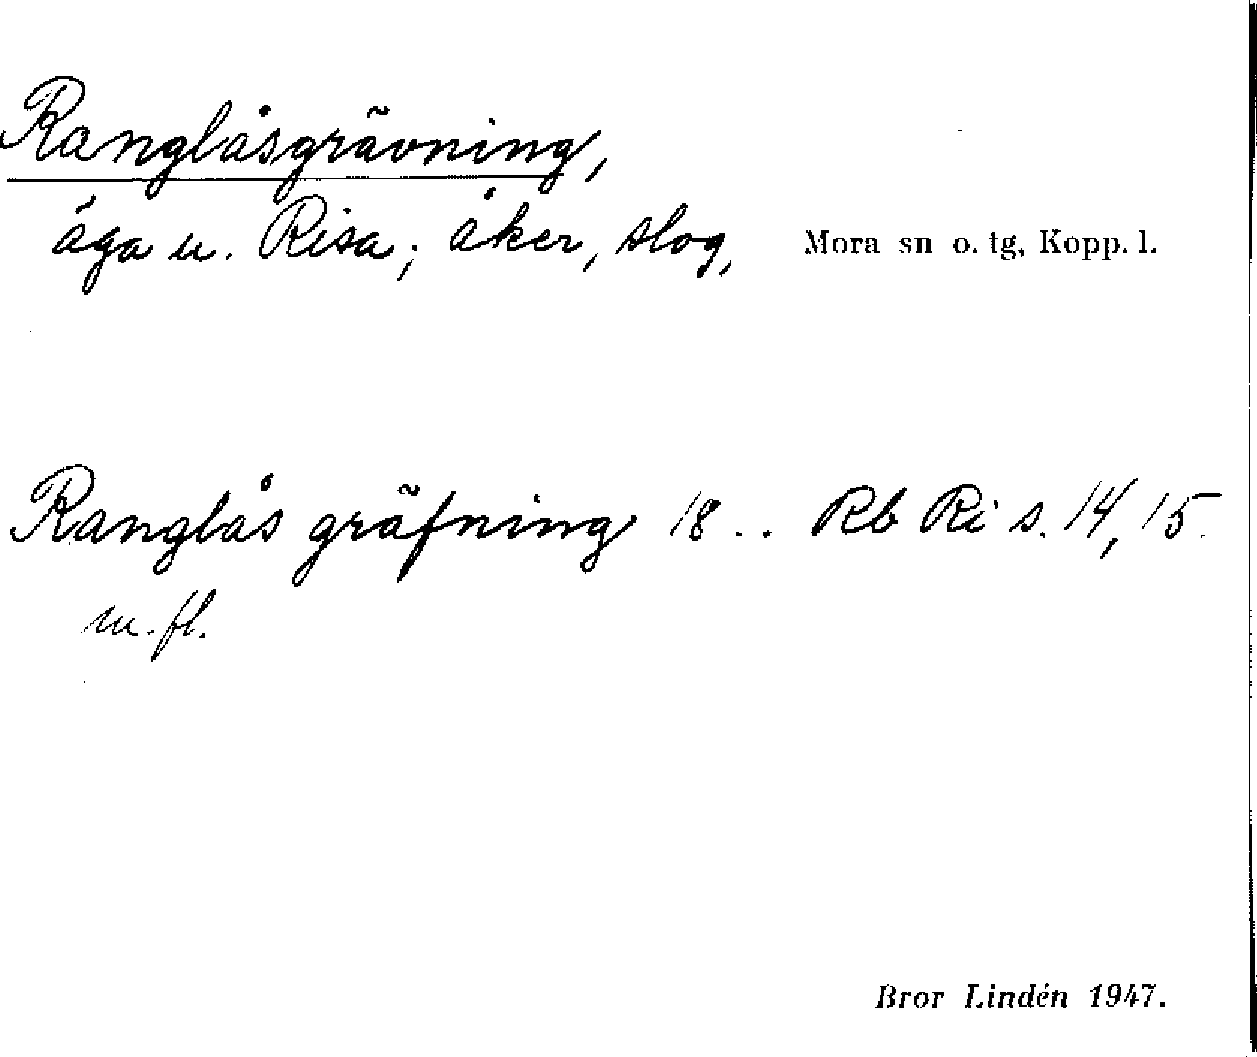 Ranglåsgrävning,
äga u. Risa; åker, slog, Mora sn o. tg, Kopp. l.
Ranglås gräfning 18 . . Rb Ri s. 14, 15
m. fl.
Bror Lindén 1947.